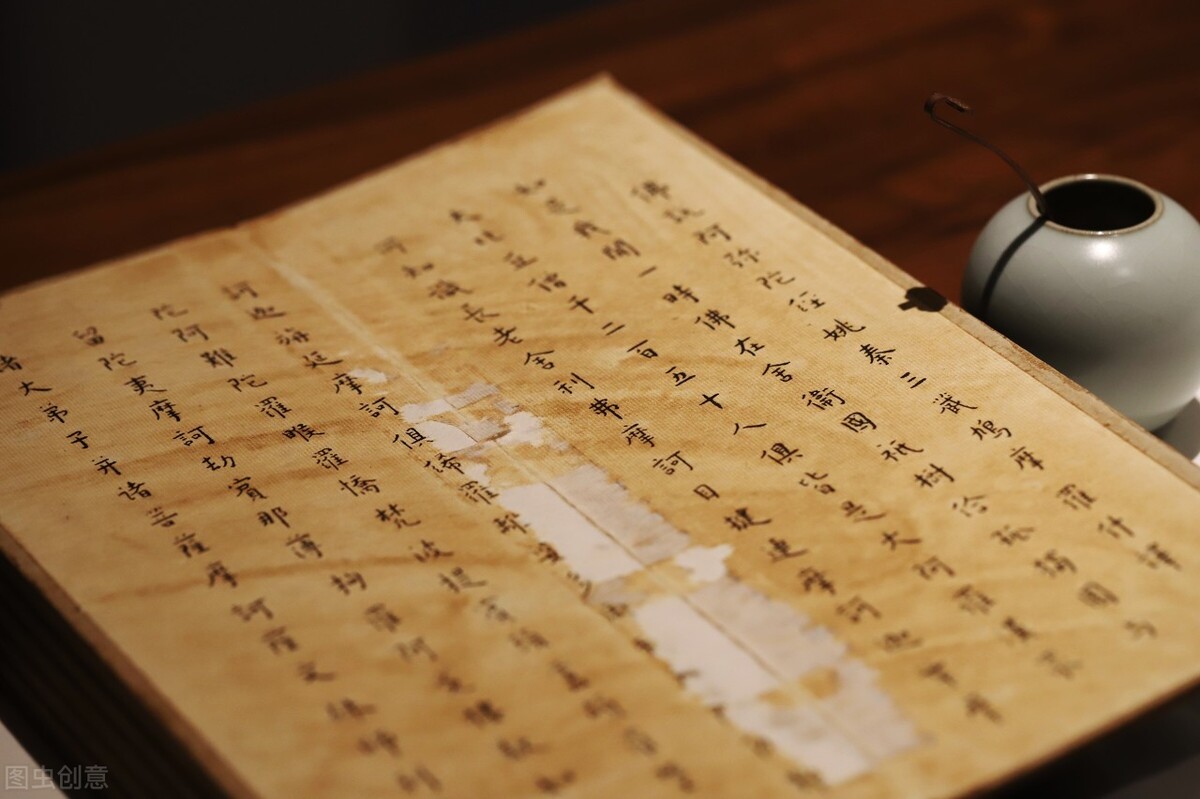 佛說阿弥陀經姚秦三藏鳩摩羅什譯
如是我聞一時佛在舍衛國祇樹給孤獨園与
大比丘僧千二百五十人俱皆是大阿羅漢衆
所知識長老舍利弗摩訶目揵連摩訶迦葉摩
訶迦旃延摩訶俱絺羅離婆多
陀阿難陀羅睺羅憍梵波提賓頭盧
留陀夷摩訶劫賓那薄拘羅阿㝹樓馱如
諸大弟子并諸菩薩摩訶薩文殊師利
图虫创意